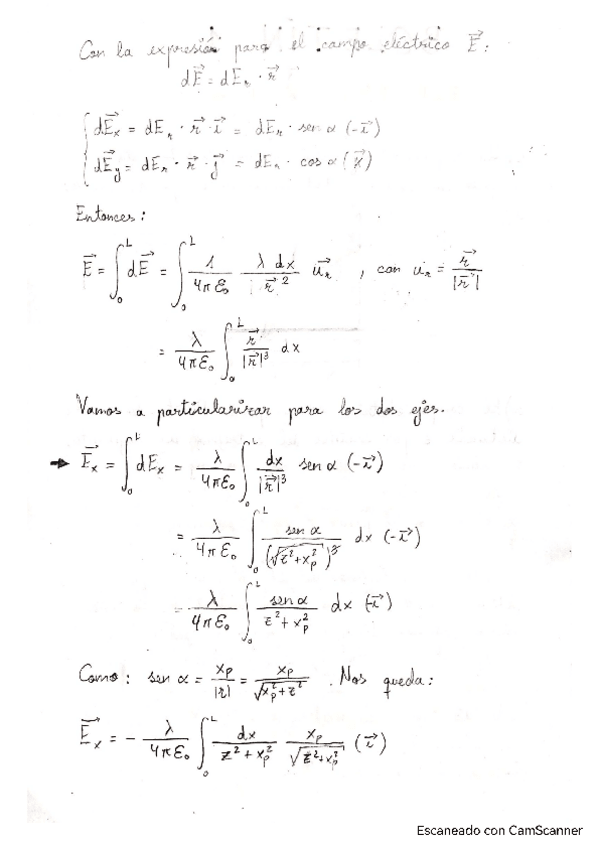 Con la expresión para el campo eléctrico E⃗:
dE⃗ = dEᵣ · r⃗
dE⃗ₓ = dEᵣ · r⃗ · i⃗ = dEᵣ · sen α (-i⃗)
dE⃗ᵧ = dEᵣ · r⃗ · j⃗ = dEᵣ · cos α (k⃗)
Entonces:
E⃗ = ∫₀ᴸ dE⃗ = ∫₀ᴸ 1/(4πε₀) λ dx/r⃗² u⃗ᵣ , con uᵣ = r⃗/|r⃗|
= λ/(4πε₀) ∫₀ᴸ r⃗/|r⃗|³ dx
Vamos a particularizar para los dos ejes.
→ E⃗ₓ = ∫₀ᴸ dEₓ = λ/(4πε₀) ∫₀ᴸ dx/|r⃗|³ sen α (-i⃗)
= λ/(4πε₀) ∫₀ᴸ sen α/(√(z²+xₚ²))² dx (-i⃗)
= λ/(4πε₀) ∫₀ᴸ sen α/(z²+xₚ²) dx (-i⃗)
Como: sen α = xₚ/|r| = xₚ/√(xₚ²+z²) . Nos queda:
E⃗ₓ = - λ/(4πε₀) ∫₀ᴸ dx/(z²+xₚ²) xₚ/√(z²+xₚ²) (i⃗)
Escaneado con CamScanner